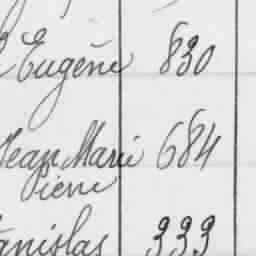 Eugène 830
Jean Marie 684
Pierre
Stanislas 333